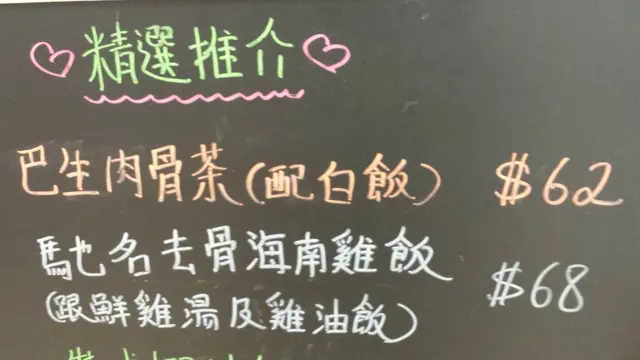 精選推介
巴生肉骨茶(配白飯) $62
馳名去骨海南雞飯 $68
(跟鮮雞湯及雞油飯)